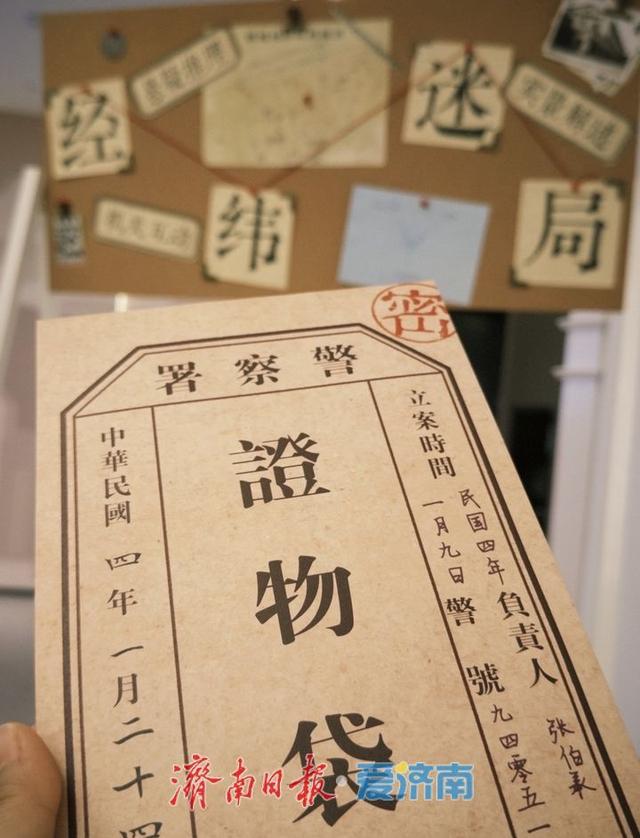 经纬迷局
密
警察署
立案時間 民国四年一月九日
負責人 张伯
警號 九四零五一
證物袋
中華民國 四年一月二十四
濟南日报·爱济南